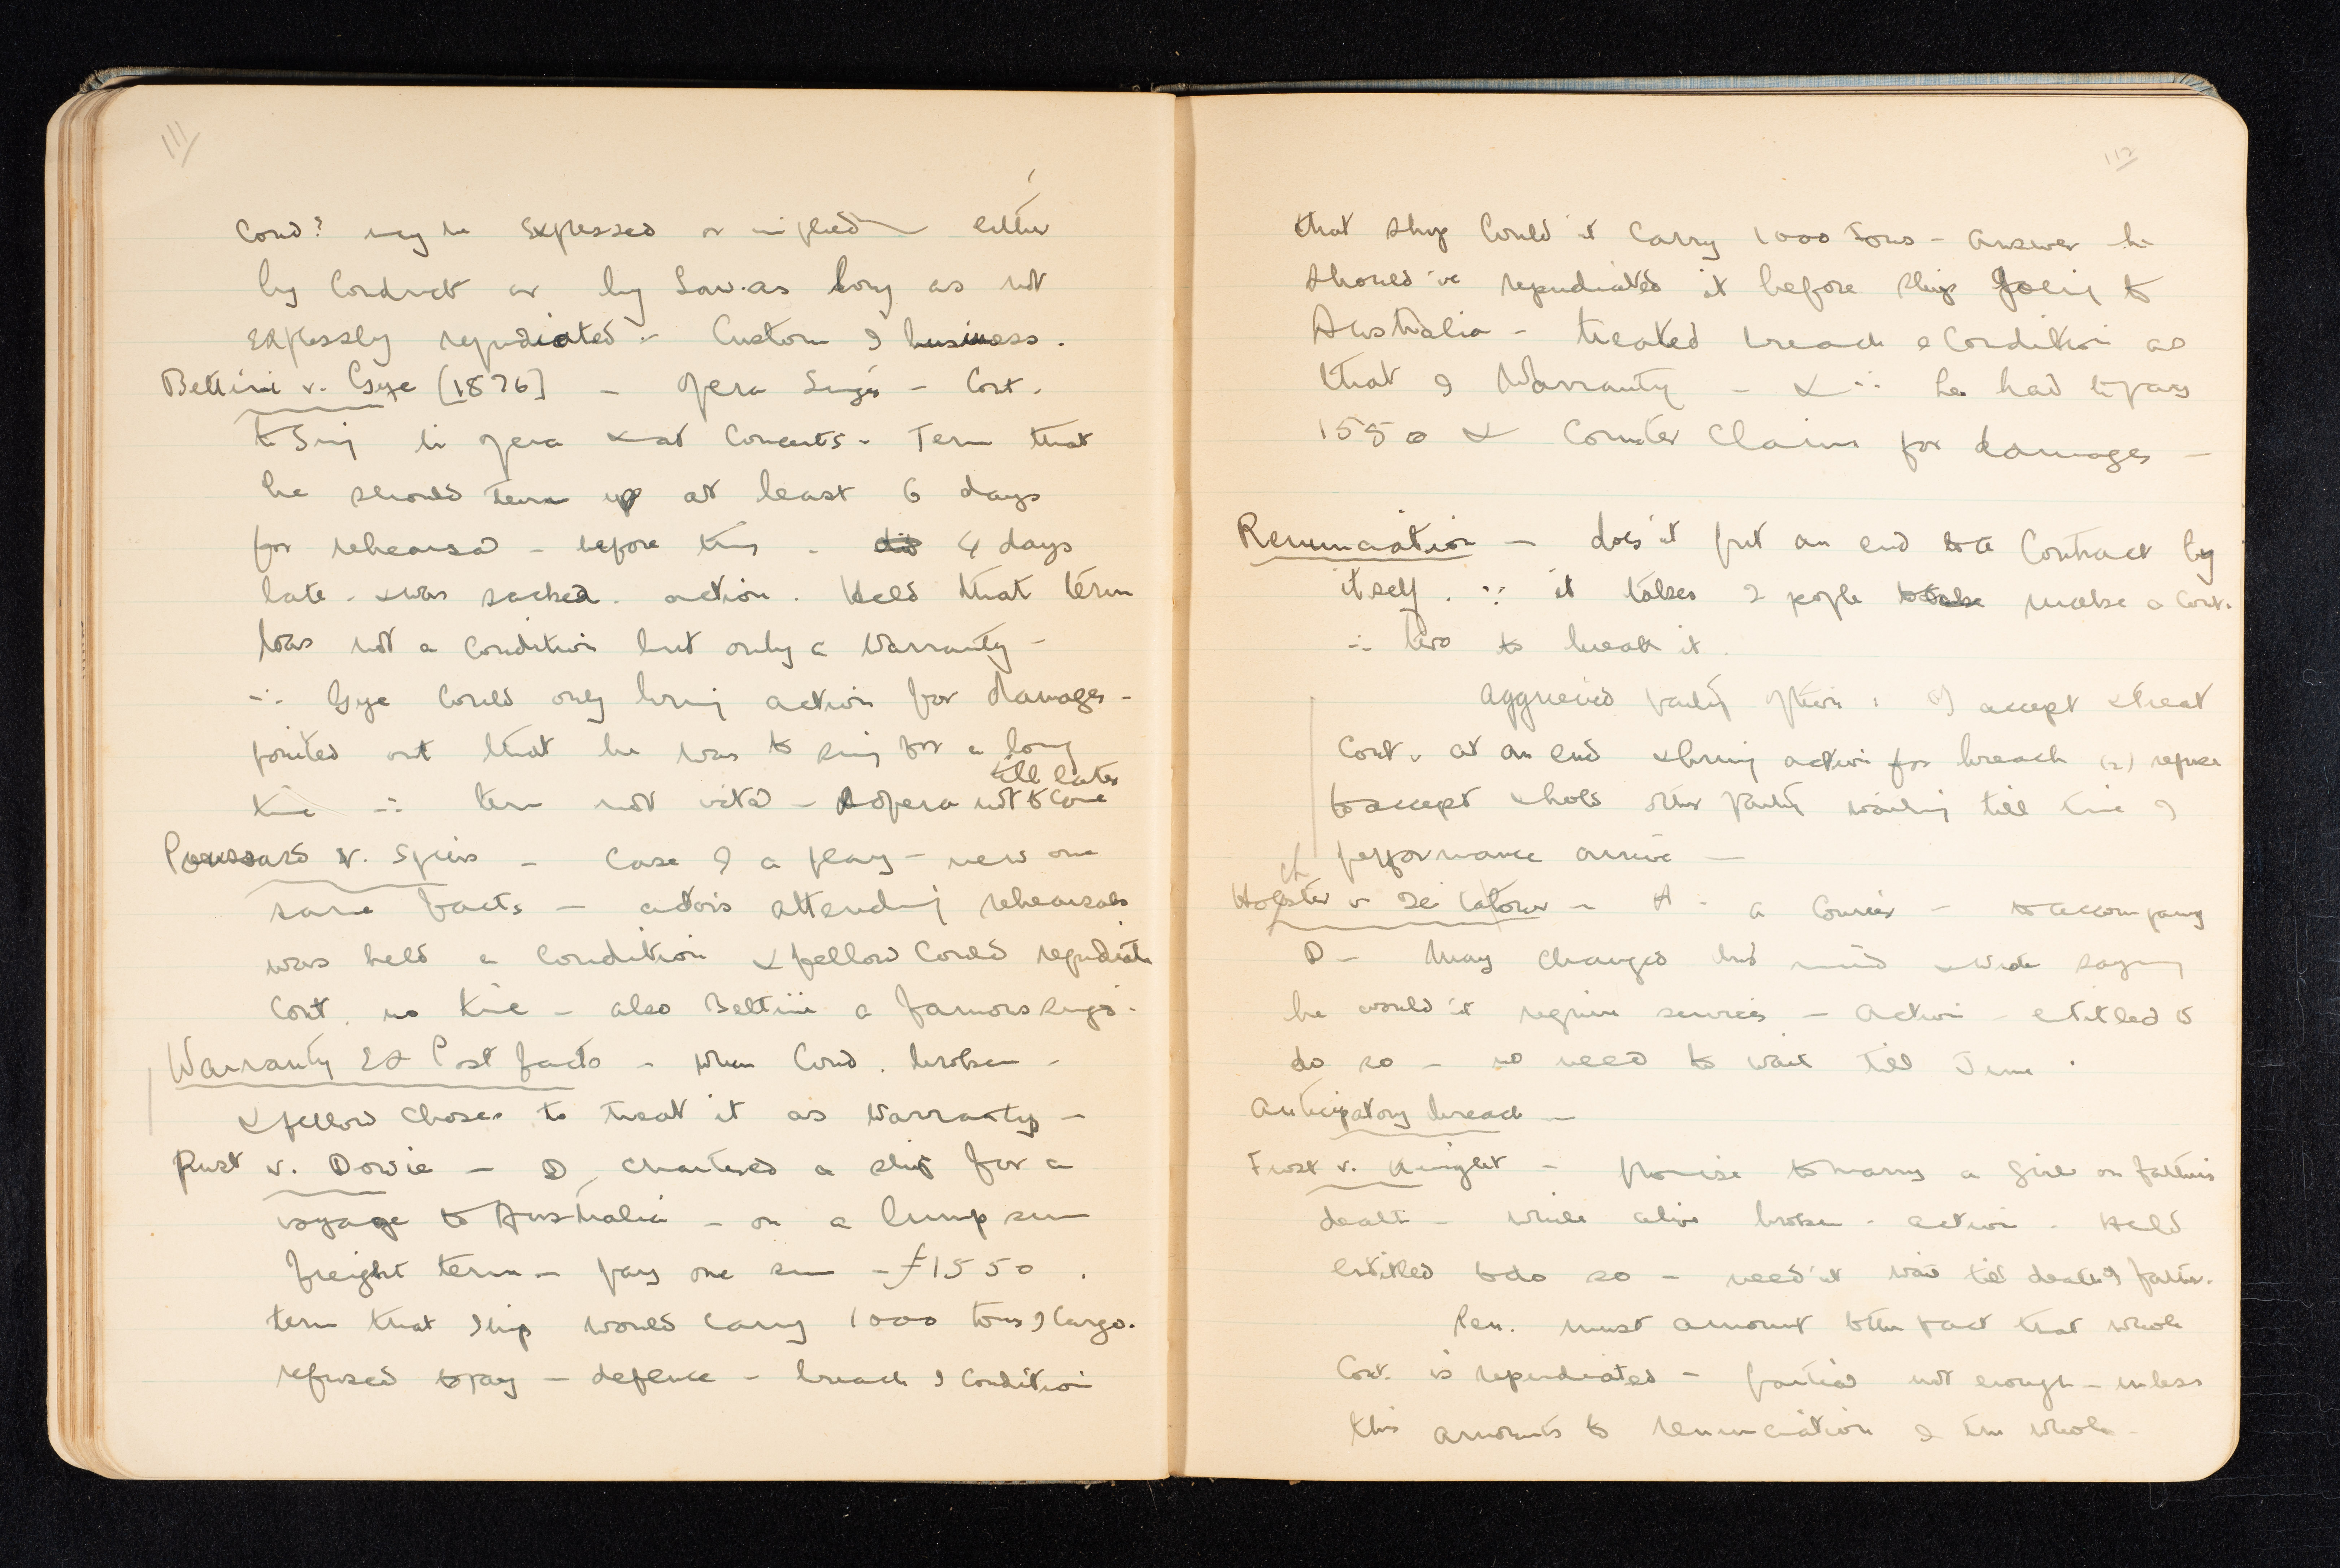 111
Cond? may be expressed or implied either
by Conduct or by Law. as long as not
expressly repudiated - Custom of business.
Bettini v. Gye [1876] - Opera Singer - Cont.
to Sing in opera & at Concerts - Term that
he should turn up at least 6 days
for rehearsal - before this - did 4 days
late - & was sacked. action. Held that term
was not a Condition but only a Warranty -
∴ Gye Could only bring action for damages -
pointed out that he was to sing for a long
time ∴ term not vital - & opera not to come till later
Poussard v. Spiers - Case of a play - new one
same facts - actors attending rehearsals
was held a Condition & fellow Could repudiate
Cont. no time - also Bettini a famous singer.
Warranty Ex Post facto - when Cond. broken -
& fellow choses to treat it as Warranty -
Pust v. Dowie - D chartered a ship for a
voyage to Australia - on a lump sum
freight term - pay one sum - £1550.
term that ship would carry 1000 tons of Cargo.
refused to pay - defence - breach of Condition
112
that ship Could'nt Carry 1000 Tons - Answer he
should've repudiated it before ship going to
Australia - treated breach of Condition as
that of Warranty - & ∴ he had to pay
1550 & Counter Claim for damages -
Renunciation - does'nt put an end to a Contract by
itself. ∵ it takes 2 people to make a Cont.
∴ two to break it.
Aggrieved party option: (1) accept & treat
Cont. at an end & bring action for breach (2) refuse
to accept & hold other party waiting till time of
performance arrive -
Hochster v De Latour - H - a Courier - to accompany
D - May changed his mind & wrote saying
he would'nt require services - Action - entitled to
do so - no need to wait till June.
Anticipatory breach -
Frost v. Knight - Promise to marry a girl on fathers
death - while alive broken - action - Held
entitled to do so - need'nt wait till death of father.
Ren. must amount to the fact that whole
Cont. is repudiated - partial not enough - unless
this amounts to renunciation of the whole.